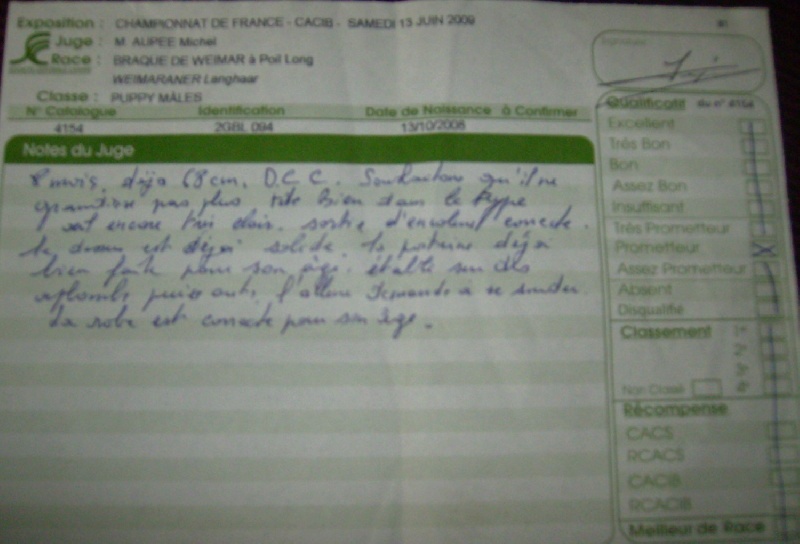 Exposition : CHAMPIONNAT DE FRANCE - CACIB - SAMEDI 13 JUIN 2009
Juge : M. AUPEE Michel
Race : BRAQUE DE WEIMAR à Poil Long
WEIMARANER Langhaar
Classe : PUPPY MÂLES
N° Catalogue Identification Date de Naissance à Confirmer
4154 2GBL 094 13/10/2008
Notes du Juge
8 mois, déjà 68 cm, D.C.C. Souhaitons qu'il ne
grandisse pas plus, tête bien dans le type
encore très clair. sortie d'encolure correcte.
le dessus est déjà solide. la poitrine déjà
bien faite pour son âge. établi sur des
aplombs puissants, l'allure demande à se
La robe est correcte pour son âge.
Signature
Qualificatif du n° 4154
Excellent
Très Bon
Bon
Assez Bon
Insuffisant
Très Prometteur
Prometteur
Assez Prometteur
Absent
Disqualifié
Classement
Non Classé
Récompense
CACS
RCACS
CACIB
RCACIB
Meilleur de Race